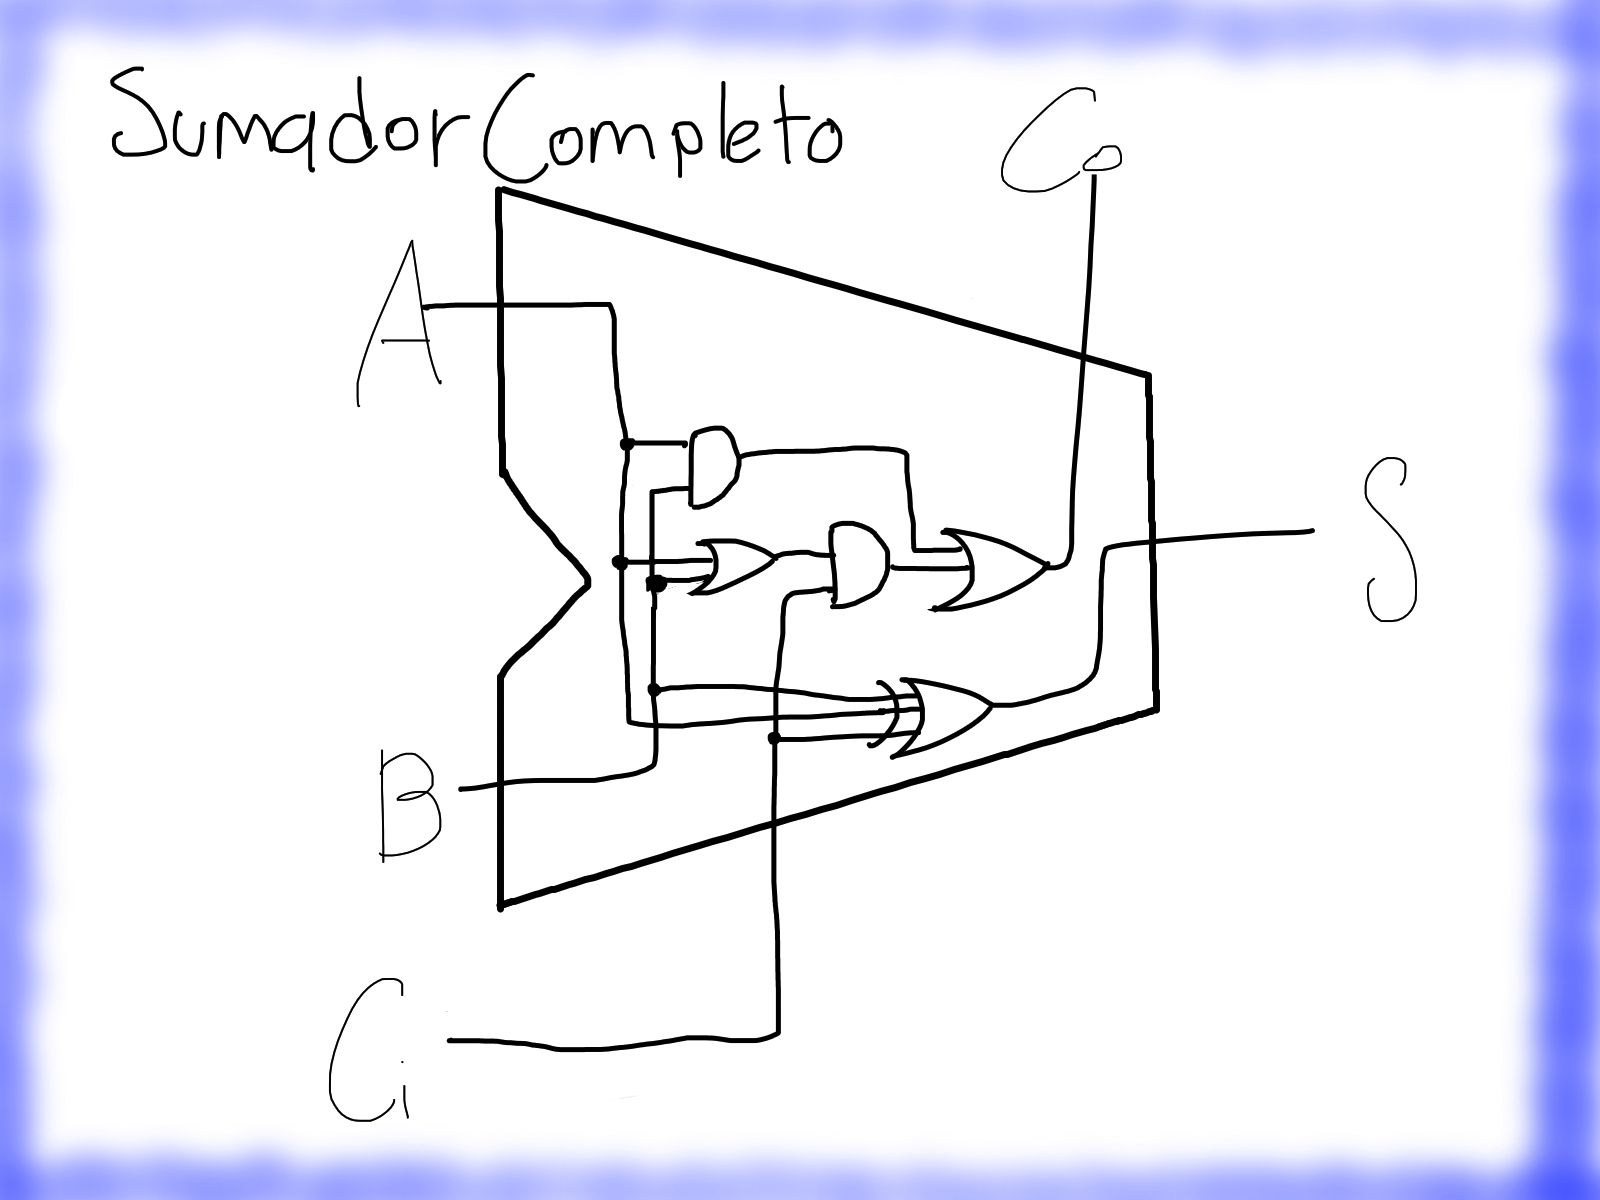 Sumador Completo
Co
A
S
B
Ci